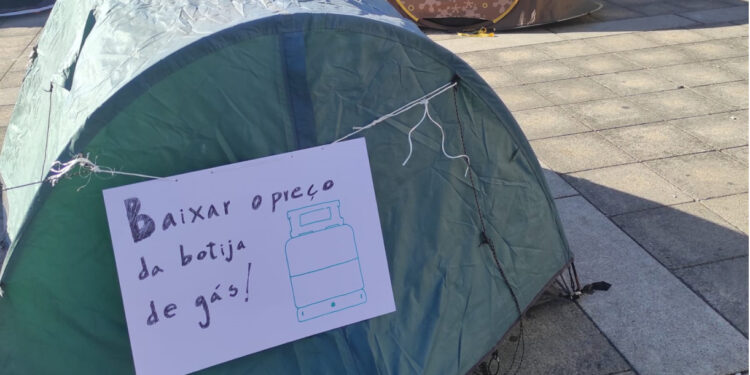 Baixar o preço
da botija
de gás!